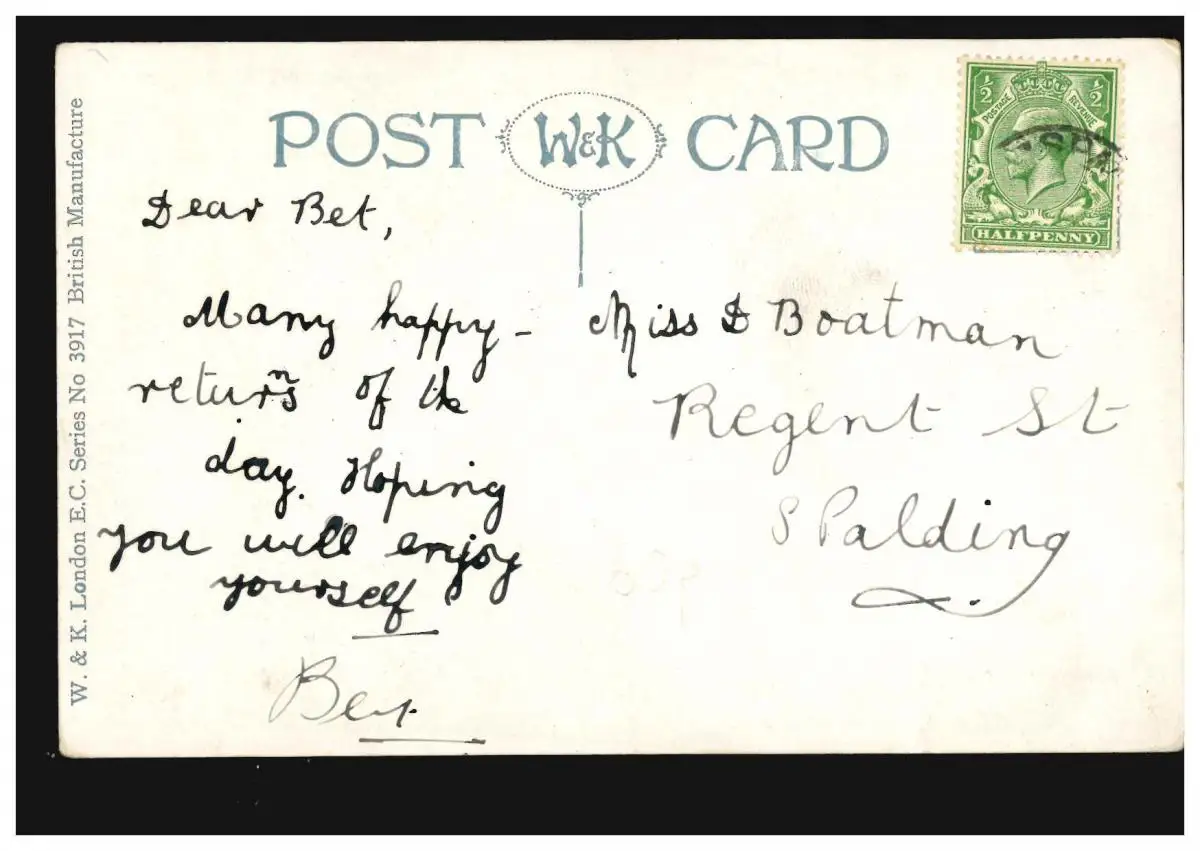 POST W&K CARD
W. & K. London E.C. Series No 3917 British Manufacture
½ ½
POSTAGE REVENUE
HALFPENNY
Dear Bet,
Many happy -
returns of the
day. Hoping
you will enjoy
yourself
Bet
Miss D Boatman
Regent St
SPalding